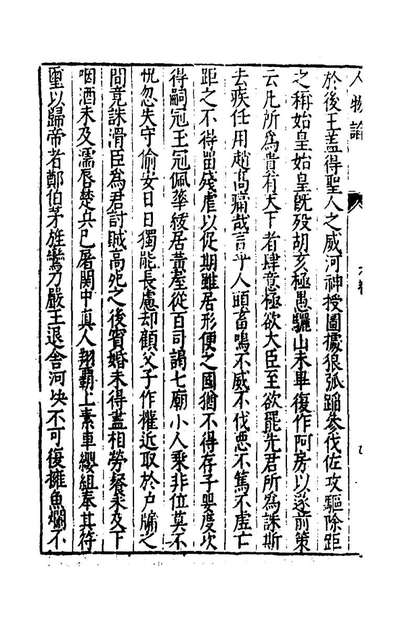 人物論
於後王蓋得聖人之威河神授圖據狼弧蹈參伐佐攻驅除距
之稱始皇始皇既歿胡亥極愚驪山未畢復作阿房以遂前策
云凡所為貴有天下者肆意極欲大臣至欲罷先君所為誅斯
去疾任用趙高痛哉言乎人頭畜鳴不威不伐惡不篤不虛亡
距之不得畱殘虐以促期雖居形便之國猶不得存子嬰度次
得嗣冠玉冠佩華紱居黃屋從百司謁七廟小人乘非位莫不
怳忽失守偷安日日獨能長慮却顧父子作權近取於戶牖之
間竟誅滑臣為君討賊高死之後賓婚未得盡相勞餐未及下
咽酒未及濡唇楚兵已屠關中真人翔霸上素車纓組奉其符
璽以歸帝者鄭伯茅旌鸞刀嚴王退舍河决不可復擁魚爛不